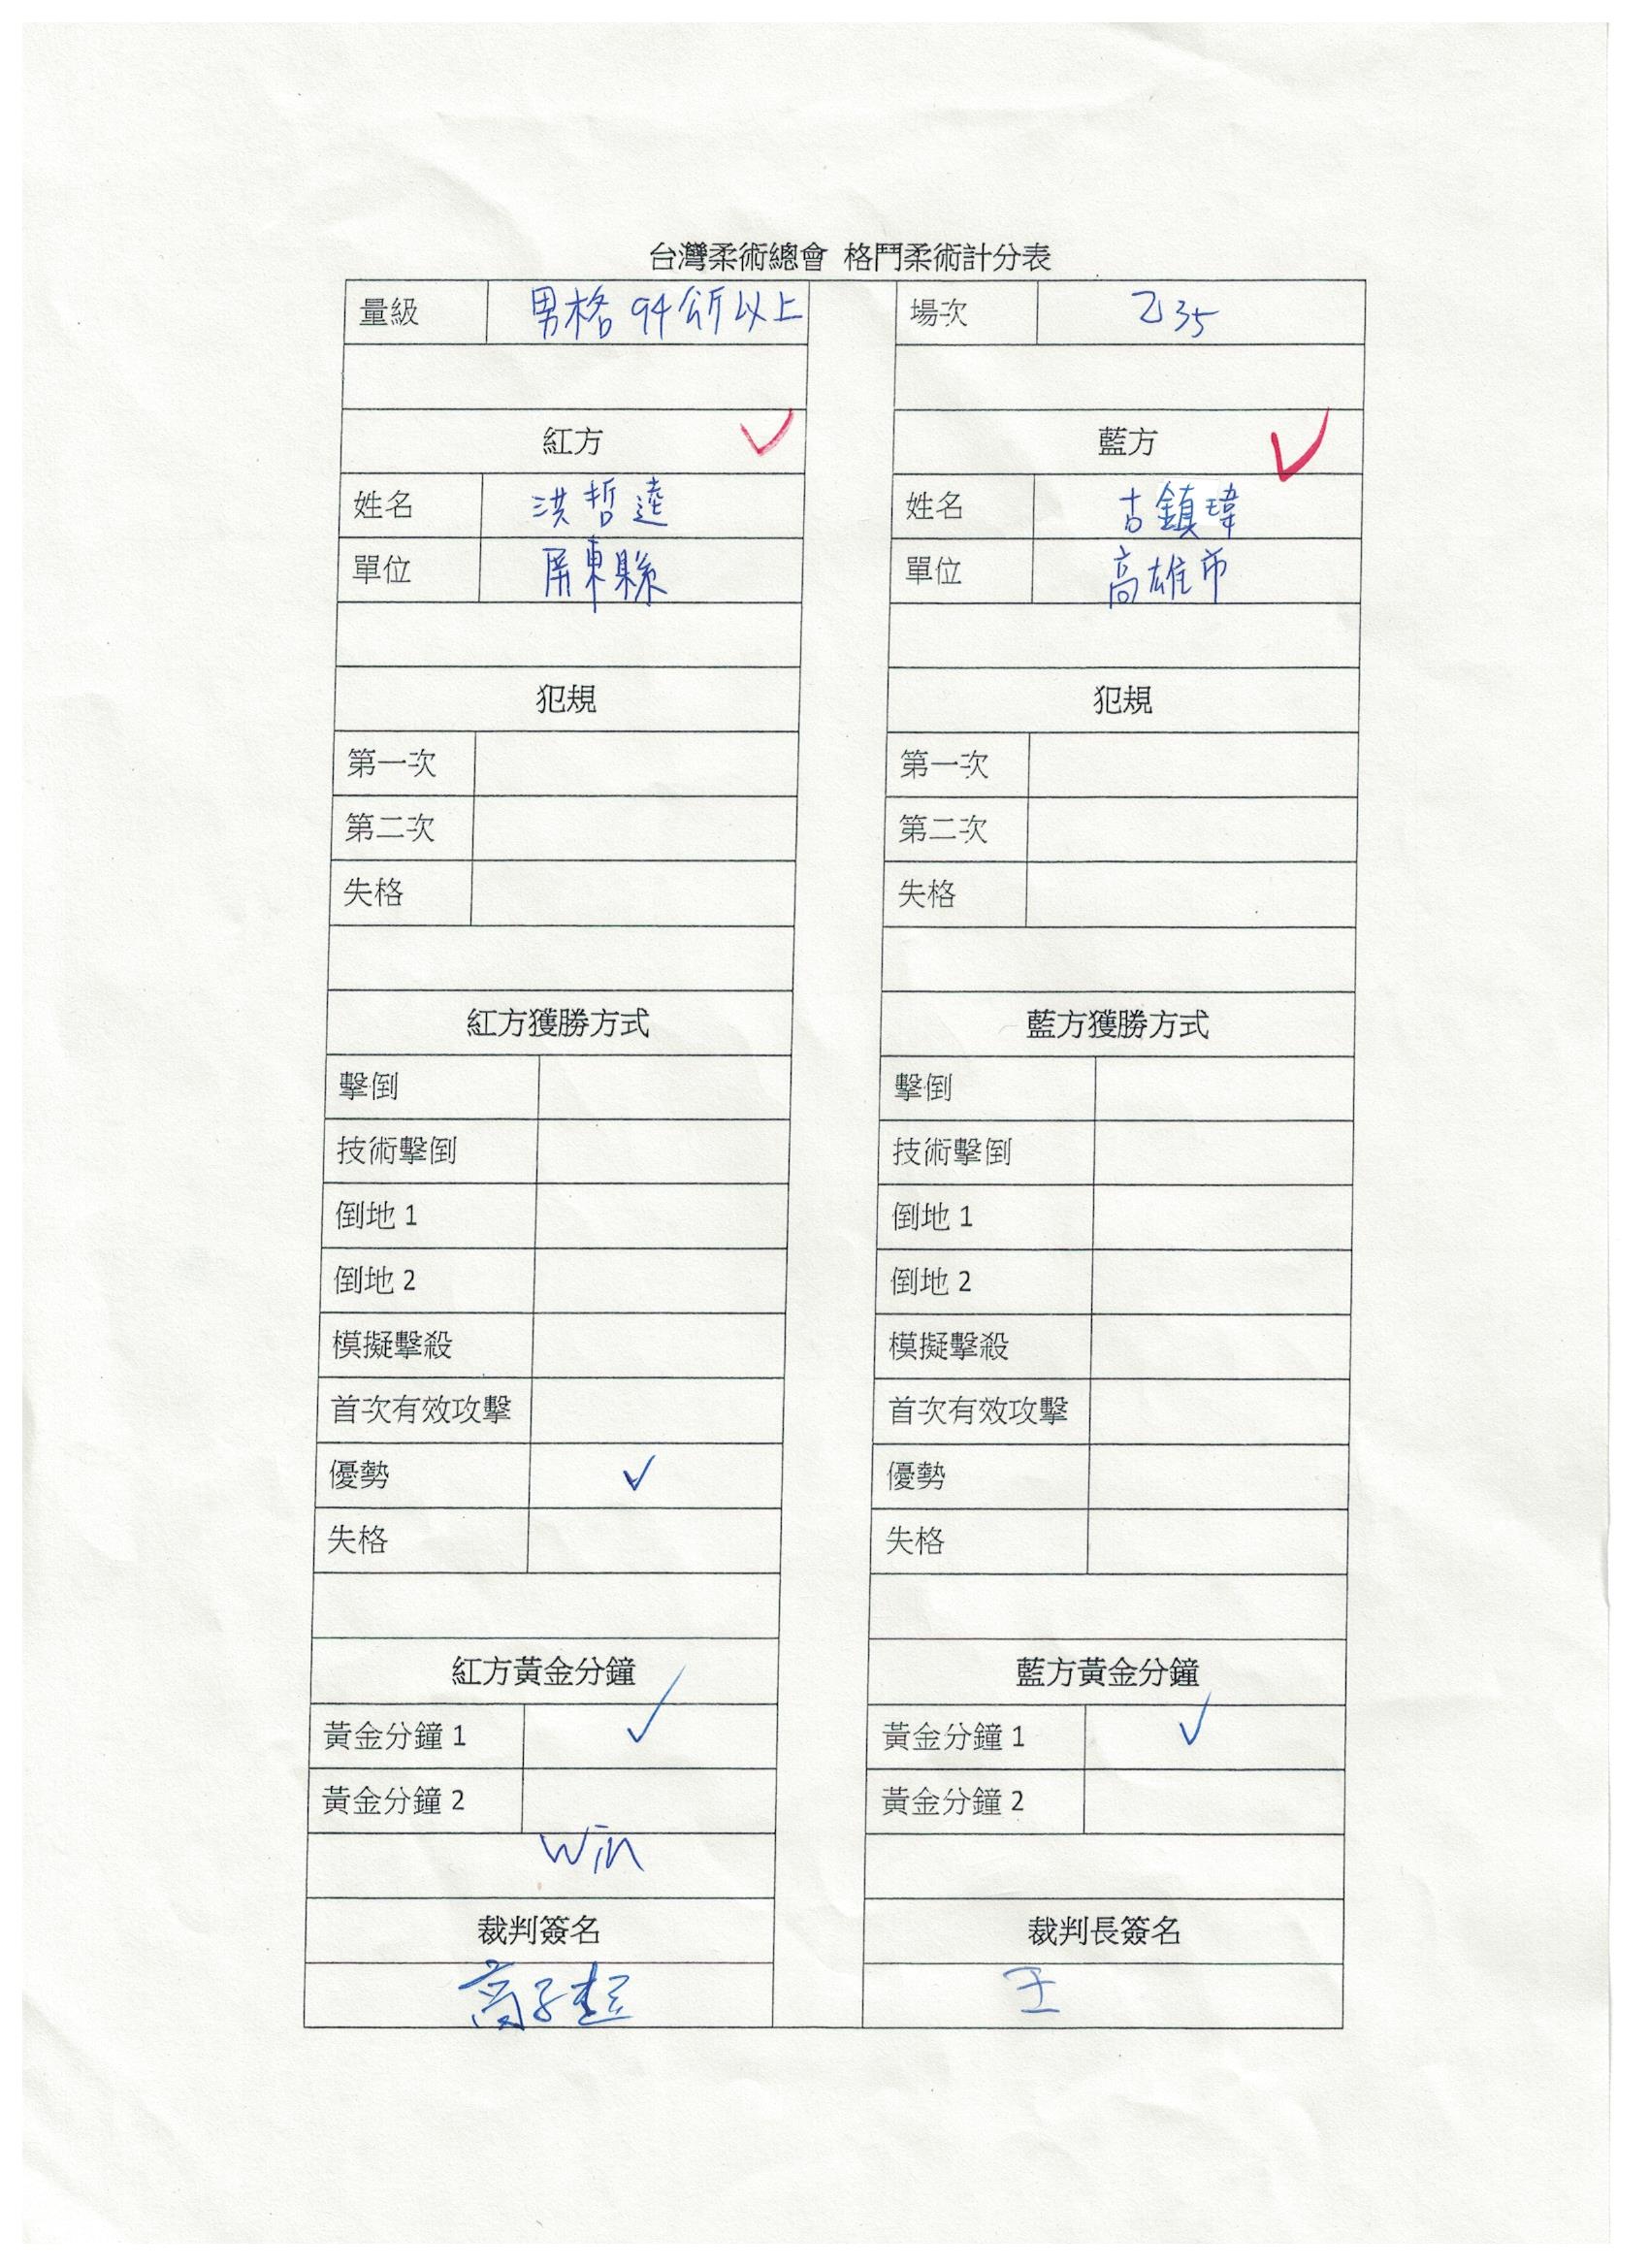 台灣柔術總會 格鬥柔術計分表
量級 男格 94公斤以上 場次 乙35
紅方 ✓ 藍方 ✓
姓名 洪哲逵 姓名 古鎮瑋
單位 屏東縣 單位 高雄市
犯規 犯規
第一次 第一次
第二次 第二次
失格 失格
紅方獲勝方式 藍方獲勝方式
擊倒 擊倒
技術擊倒 技術擊倒
倒地 1 倒地 1
倒地 2 倒地 2
模擬擊殺 模擬擊殺
首次有效攻擊 首次有效攻擊
優勢 ✓ 優勢
失格 失格
紅方黃金分鐘 藍方黃金分鐘
黃金分鐘 1 ✓ 黃金分鐘 1 ✓
黃金分鐘 2 黃金分鐘 2
Win
裁判簽名 裁判長簽名
王